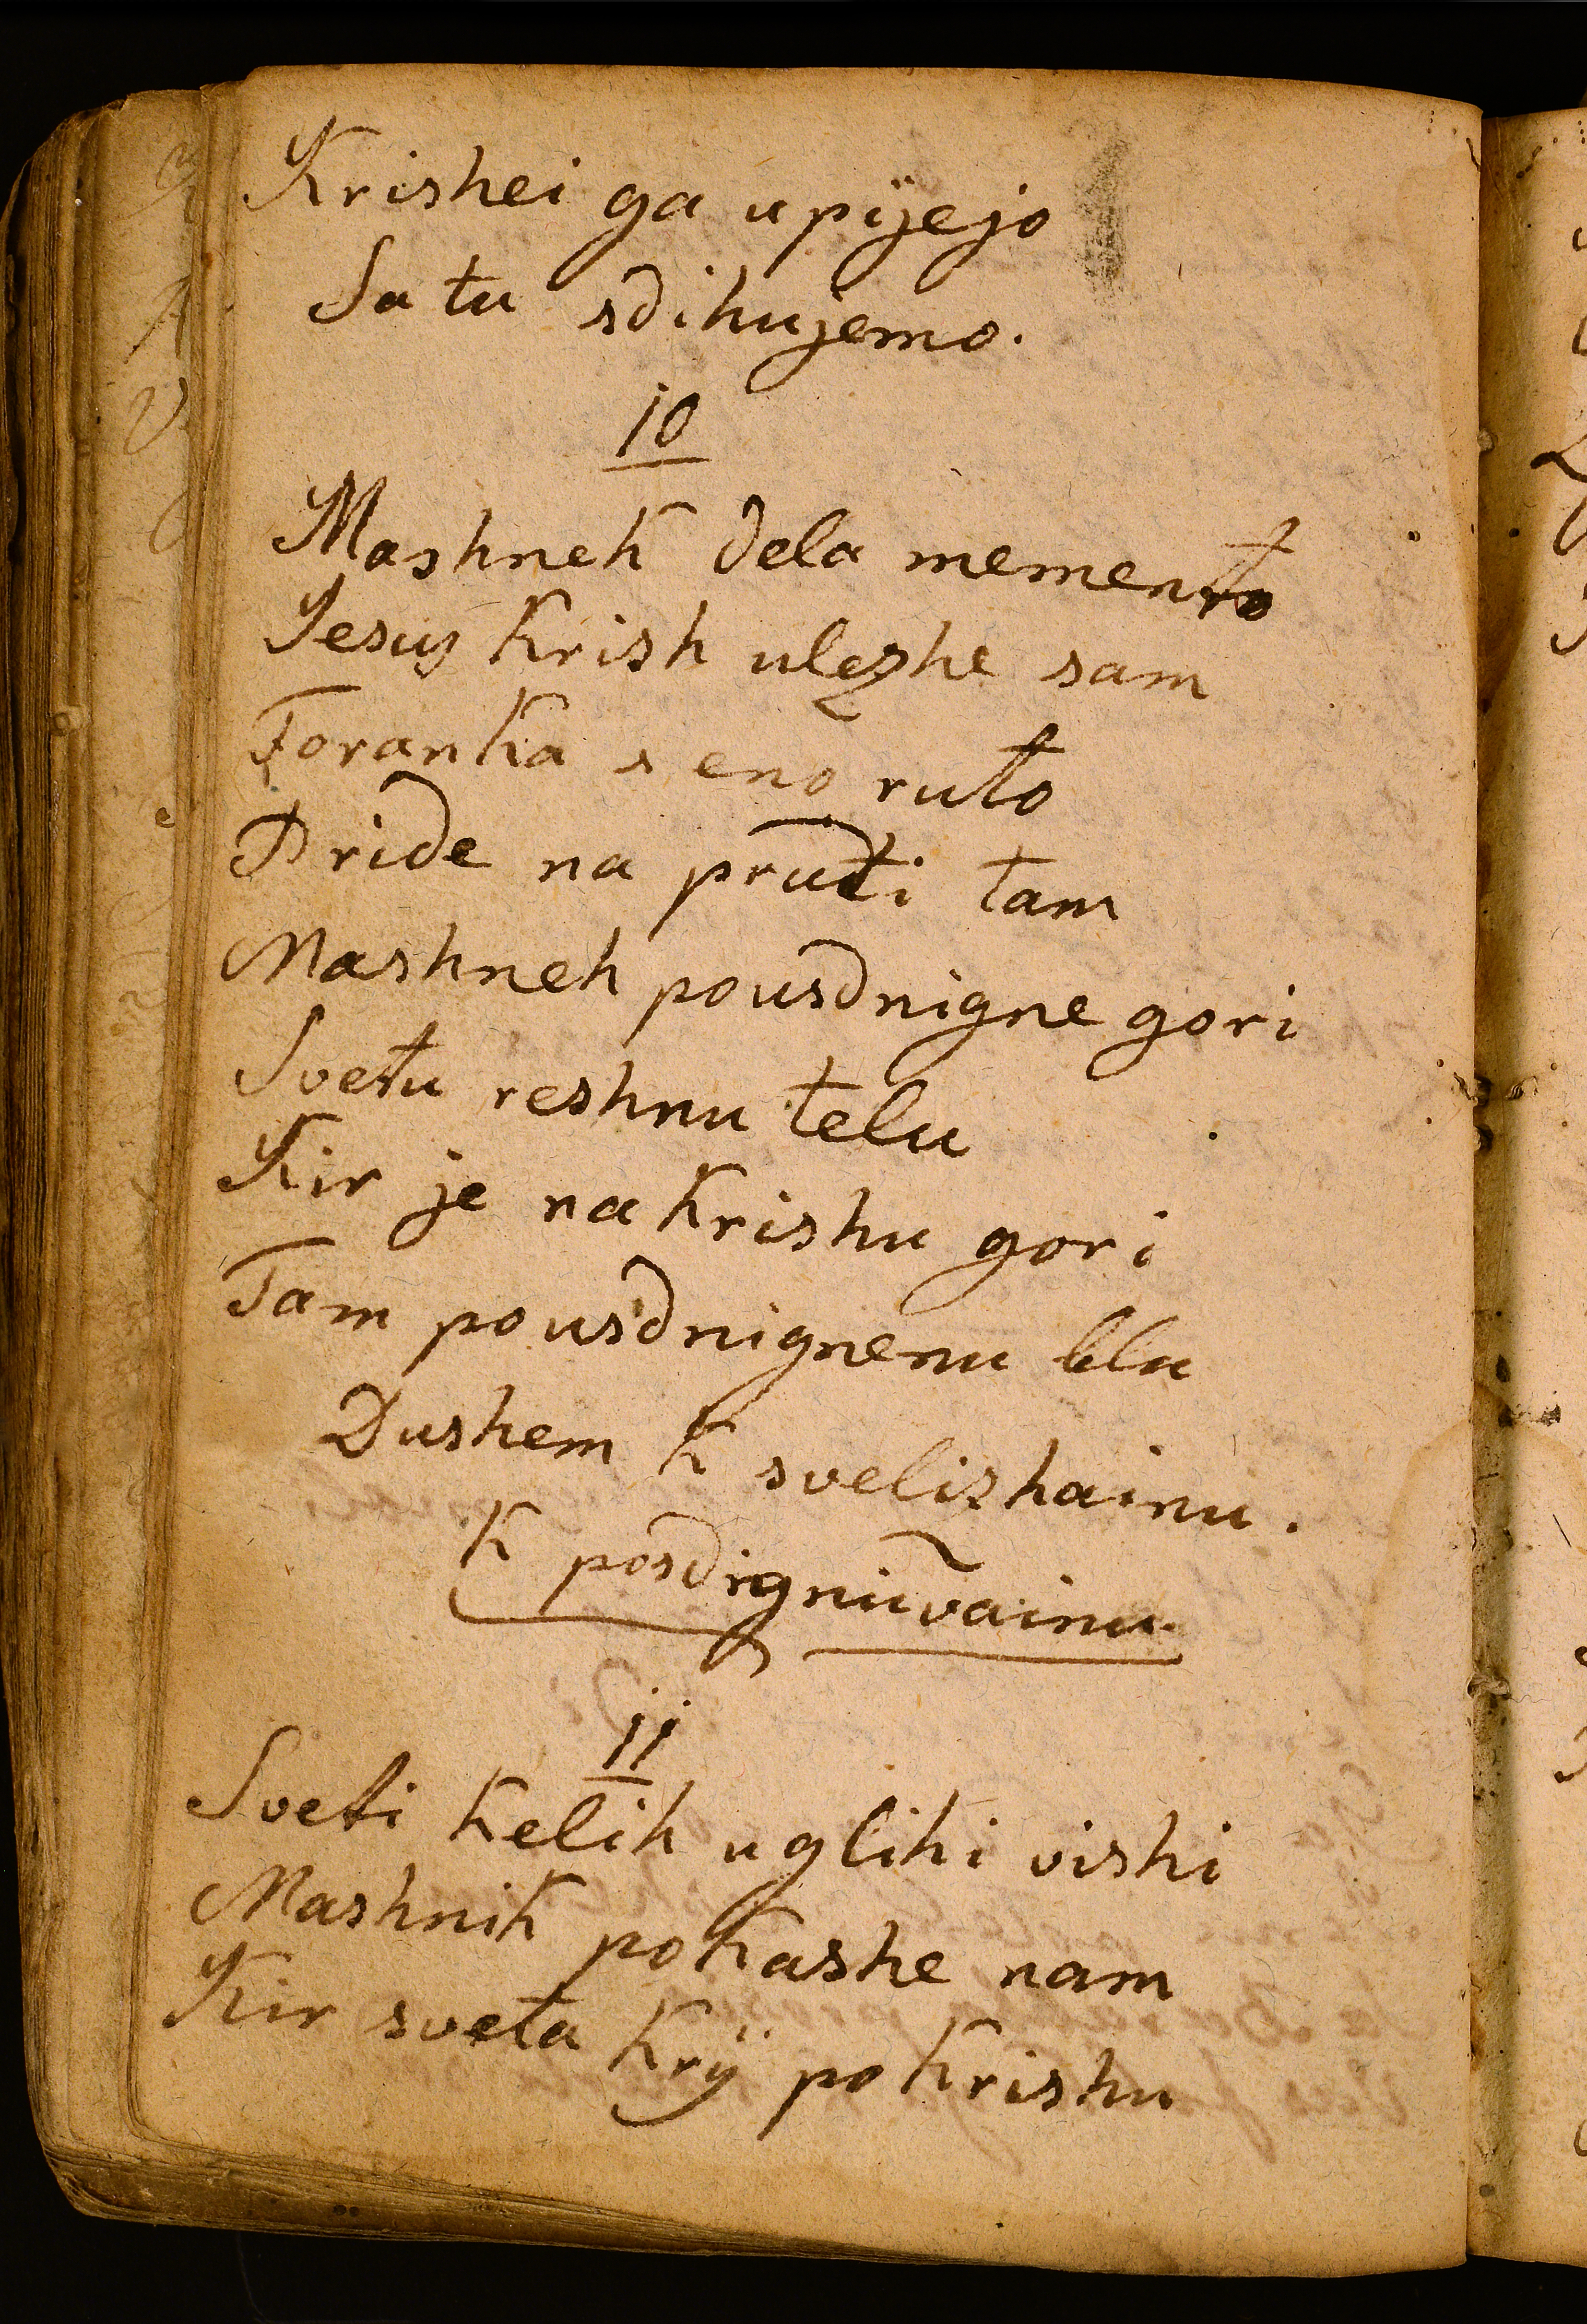 Krishei ga upÿejo
Sa tu sdihujemo.
10
Mashnek dela memento
Jesus Krish ulezhe sam
Foranka s eno ruto
Pride na pruti tam
Mashnek pousdnigne gori
Svetu reshnu telu
Kir je na Krishu gori
Tam pousdnignenu blu
Dushem k svelizhainu.
K posdignuvainu.
11
Sveti Kelih u glihi vishi
Mashnik pokashe nam
Kir sveta Krÿ po Krishu